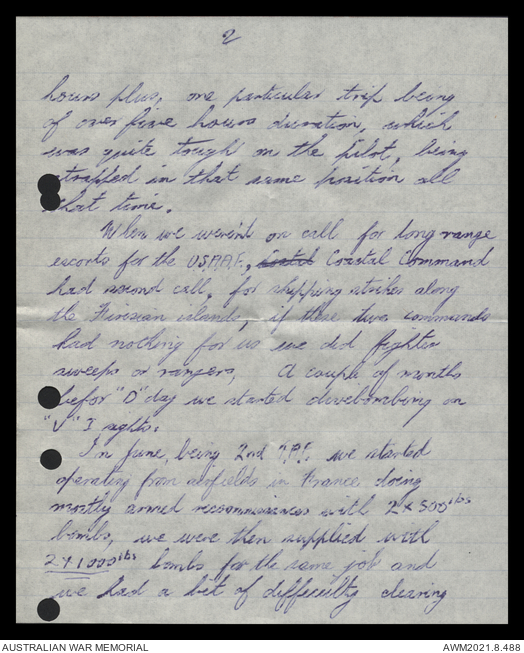 2
hours plus, one particular trip being
of over five hours duration, which
was quite tough on the pilot, being
strapped in that same position all
that time.
When we weren't on call for long range
escorts for the U.S.A.A.F., Coastal Command
had second call, for shipping strikes along
the Friesian islands, if these two commands
had nothing for us we did fighter
sweeps or rangers. A couple of months
befor "D" day we started divebombing on
"V" I sights.
In June, being 2nd T.A.F. we started
operating from airfields in France doing
mostly armed reconnaissances with 2 x 500 lbs
bombs, we were then supplied with
2 x 1000 lbs bombs for the same job and
we had a bit of difficulty clearing
AUSTRALIAN WAR MEMORIAL
AWM2021.8.488